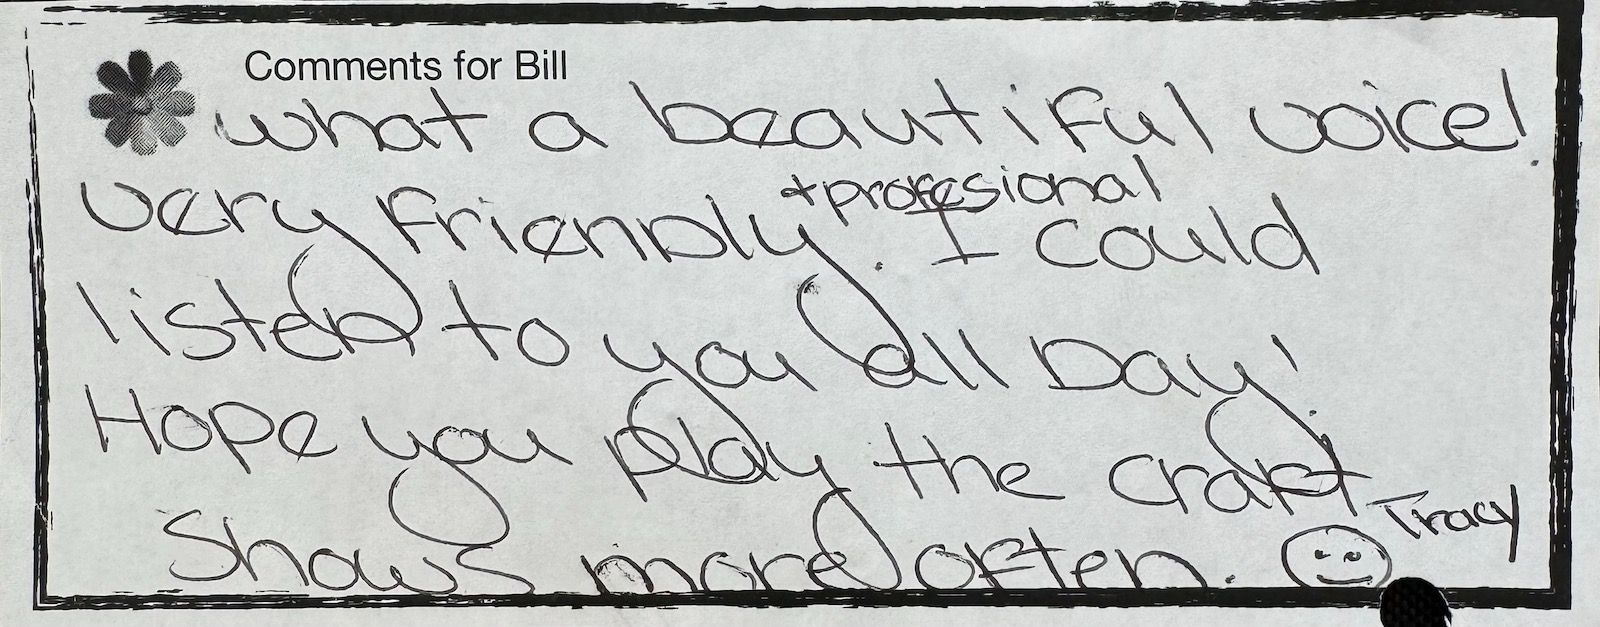 Comments for Bill
what a beautiful voice!
very friendly + profesional. I could
listen to you all Day!
Hope you play the craft
Shows more often. Tracy